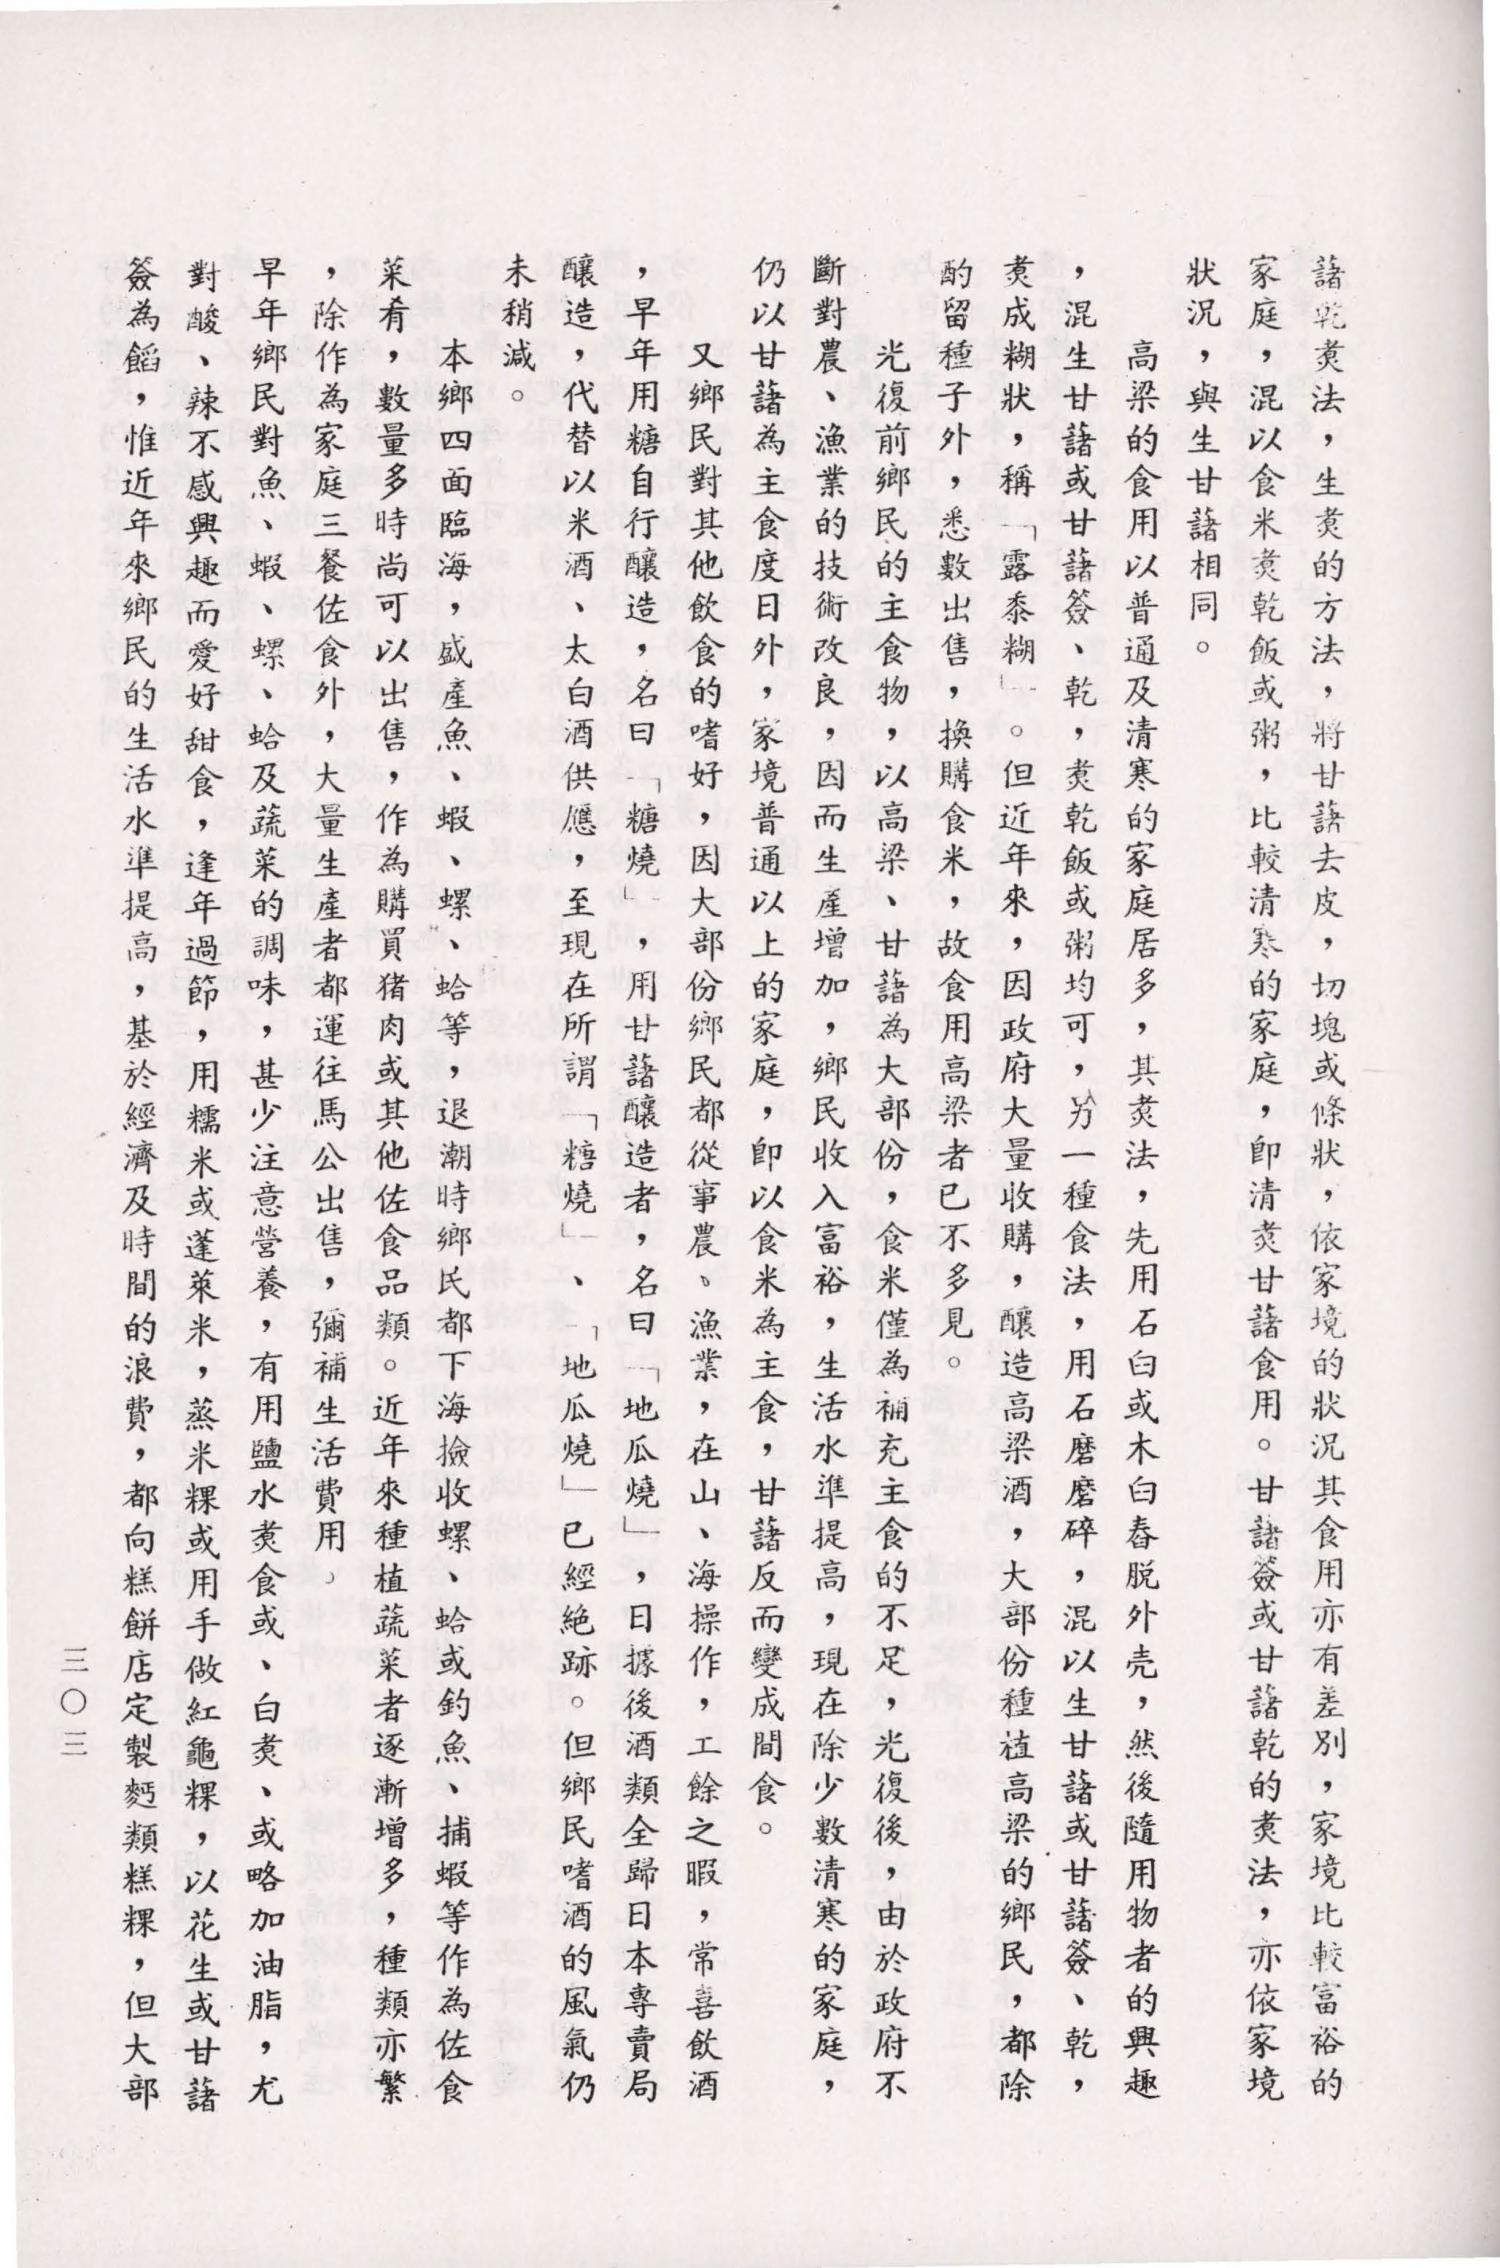 藷乾煑法，生煑的方法，將甘藷去皮，切塊或條狀，依家境的狀況其食用亦有差別，家境比較富裕的
家庭，混以食米煑乾飯或粥，比較清寒的家庭，即清煑甘藷食用。甘藷簽或甘藷乾的煑法，亦依家境
狀況，與生甘藷相同。
高梁的食用以普通及清寒的家庭居多，其煑法，先用石臼或木臼舂脱外壳，然後隨用物者的興趣
，混生甘藷或甘藷簽、乾，煑乾飯或粥均可，另一種食法，用石磨磨碎，混以生甘藷或甘藷簽、乾，
煑成糊狀，稱「露黍糊」。但近年來，因政府大量收購，釀造高梁酒，大部份種植高梁的鄉民，都除
酌留種子外，悉數出售，換購食米，故食用高梁者已不多見。
光復前鄉民的主食物，以高梁、甘藷為大部份，食米僅為補充主食的不足，光復後，由於政府不
斷對農、漁業的技術改良，因而生產增加，鄉民收入富裕，生活水準提高，現在除少數清寒的家庭，
仍以甘藷為主食度日外，家境普通以上的家庭，即以食米為主食，甘藷反而變成間食。
又鄉民對其他飲食的嗜好，因大部份鄉民都從事農、漁業，在山、海操作，工餘之暇，常喜飲酒
，早年用糖自行釀造，名曰「糖燒」，用甘藷釀造者，名曰「地瓜燒」，日據後酒類全歸日本專賣局
釀造，代替以米酒、太白酒供應，至現在所謂「糖燒」、「地瓜燒」已經絶跡。但鄉民嗜酒的風氣仍
未稍減。
本鄉四面臨海，盛產魚、蝦、螺、蛤等，退潮時鄉民都下海撿收螺、蛤或釣魚、捕蝦等作為佐食
菜肴，數量多時尚可以出售，作為購買猪肉或其他佐食品類。近年來種植蔬菜者逐漸增多，種類亦繁
，除作為家庭三餐佐食外，大量生產者都運往馬公出售，彌補生活費用。
早年鄉民對魚、蝦、螺、蛤及蔬菜的調味，甚少注意營養，有用鹽水煑食或、白煑、或略加油脂，尤
對酸、辣不感興趣而愛好甜食，逢年過節，用糯米或蓬萊米，蒸米粿或用手做紅龜粿，以花生或甘藷
簽為餡，惟近年來鄉民的生活水準提高，基於經濟及時間的浪費，都向糕餅店定製麪類糕粿，但大部
三〇三